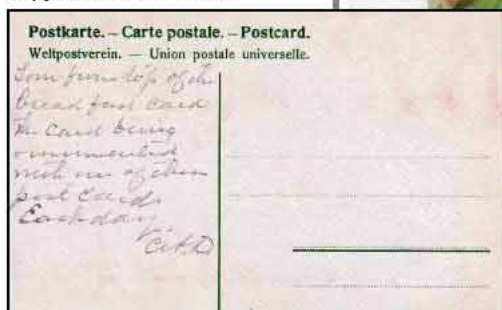 Postkarte. – Carte postale. – Postcard.
Weltpostverein. — Union postale universelle.
Torn from top of the
breakfast card
the card being
ornamented
with one of these
post cards
Each day